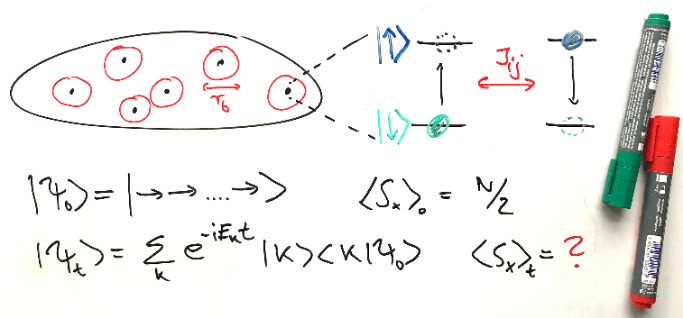 |↑⟩ J_ij
r_b
|↓⟩
|Ψ₀⟩ = |→→....→⟩ ⟨S_x⟩₀ = N/2
|Ψ_t⟩ = Σ_k e^{-iE_k t} |k⟩⟨k|Ψ₀⟩ ⟨S_x⟩_t = ?